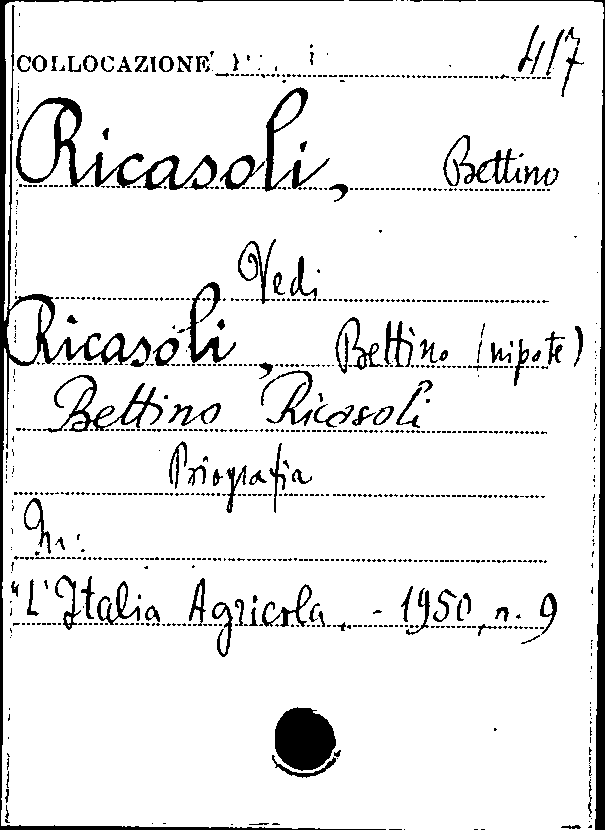 COLLOCAZIONE 417
Ricasoli, Bettino
Vedi
Ricasoli, Bettino (nipote)
Bettino Ricasoli
Biografia
In:
"L'Italia Agricola. - 1950, n. 9